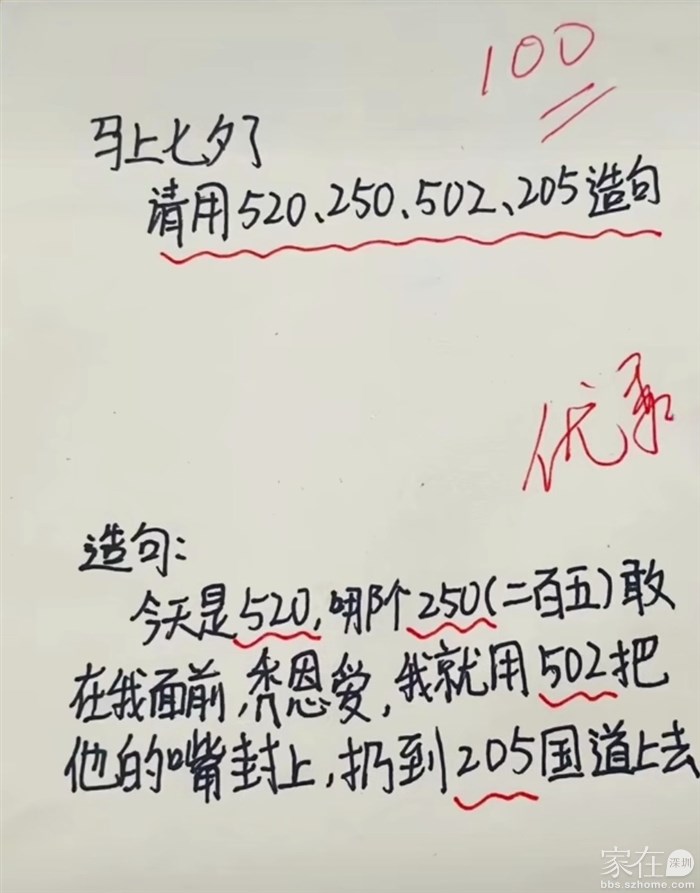 100
马上七夕了
请用520、250、502、205造句
优秀
造句:
今天是520,哪个250(二百五)敢
在我面前,秀恩爱,我就用502把
他的嘴封上,扔到205国道上去
家在深圳
bbs.szhome.com